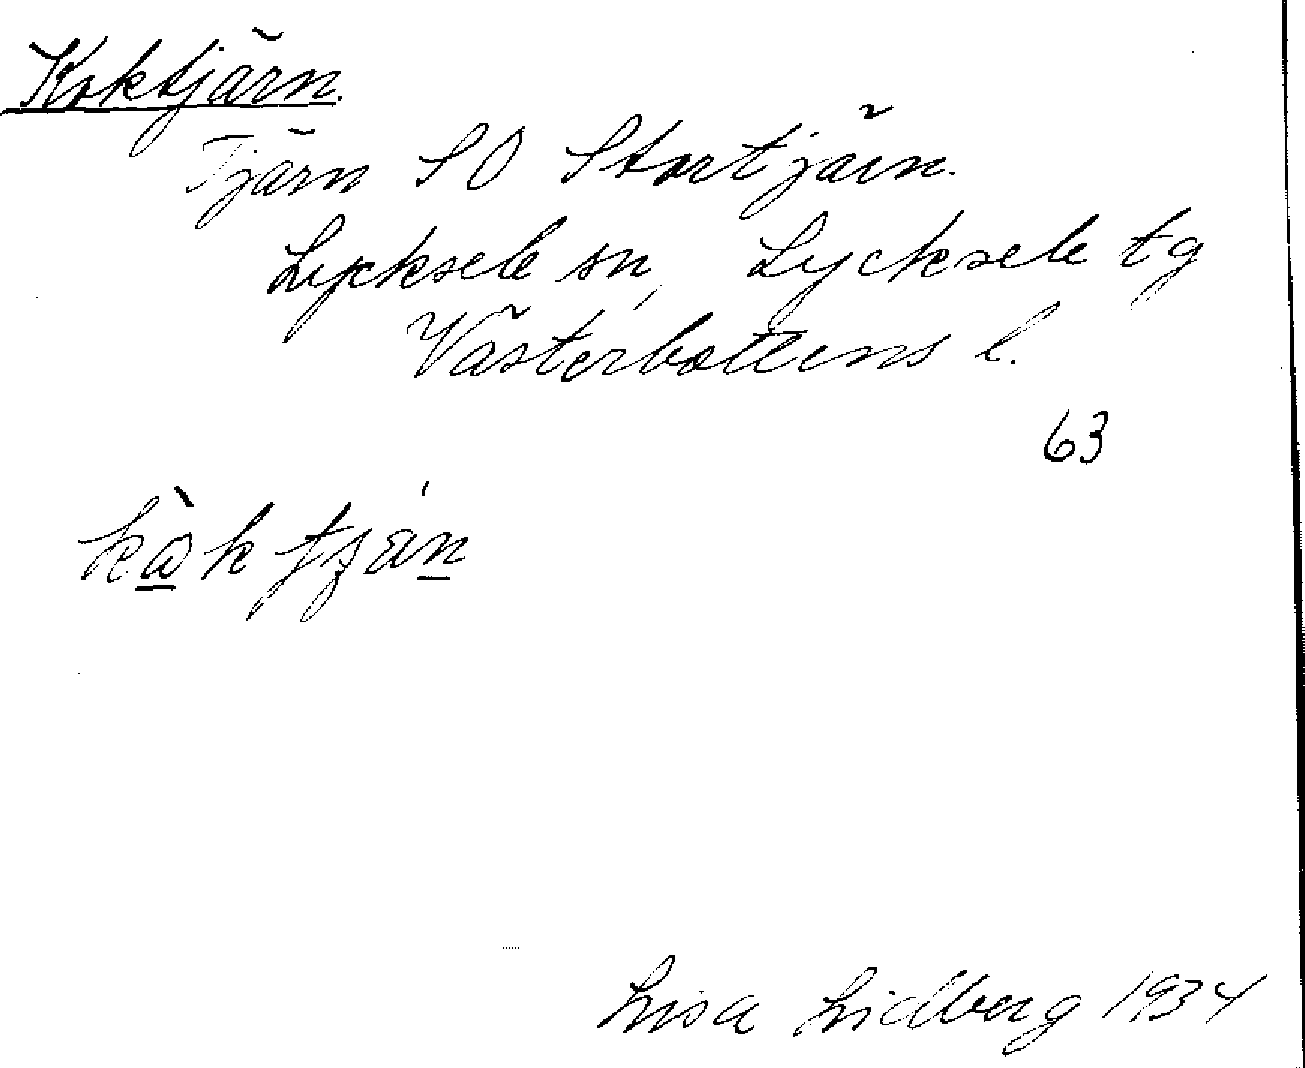 Koktjärn.
Tjärn SO Stortjärn.
Lycksele sn, Lycksele tg
Västerbottens l.
63
Lisa Lidberg 1934